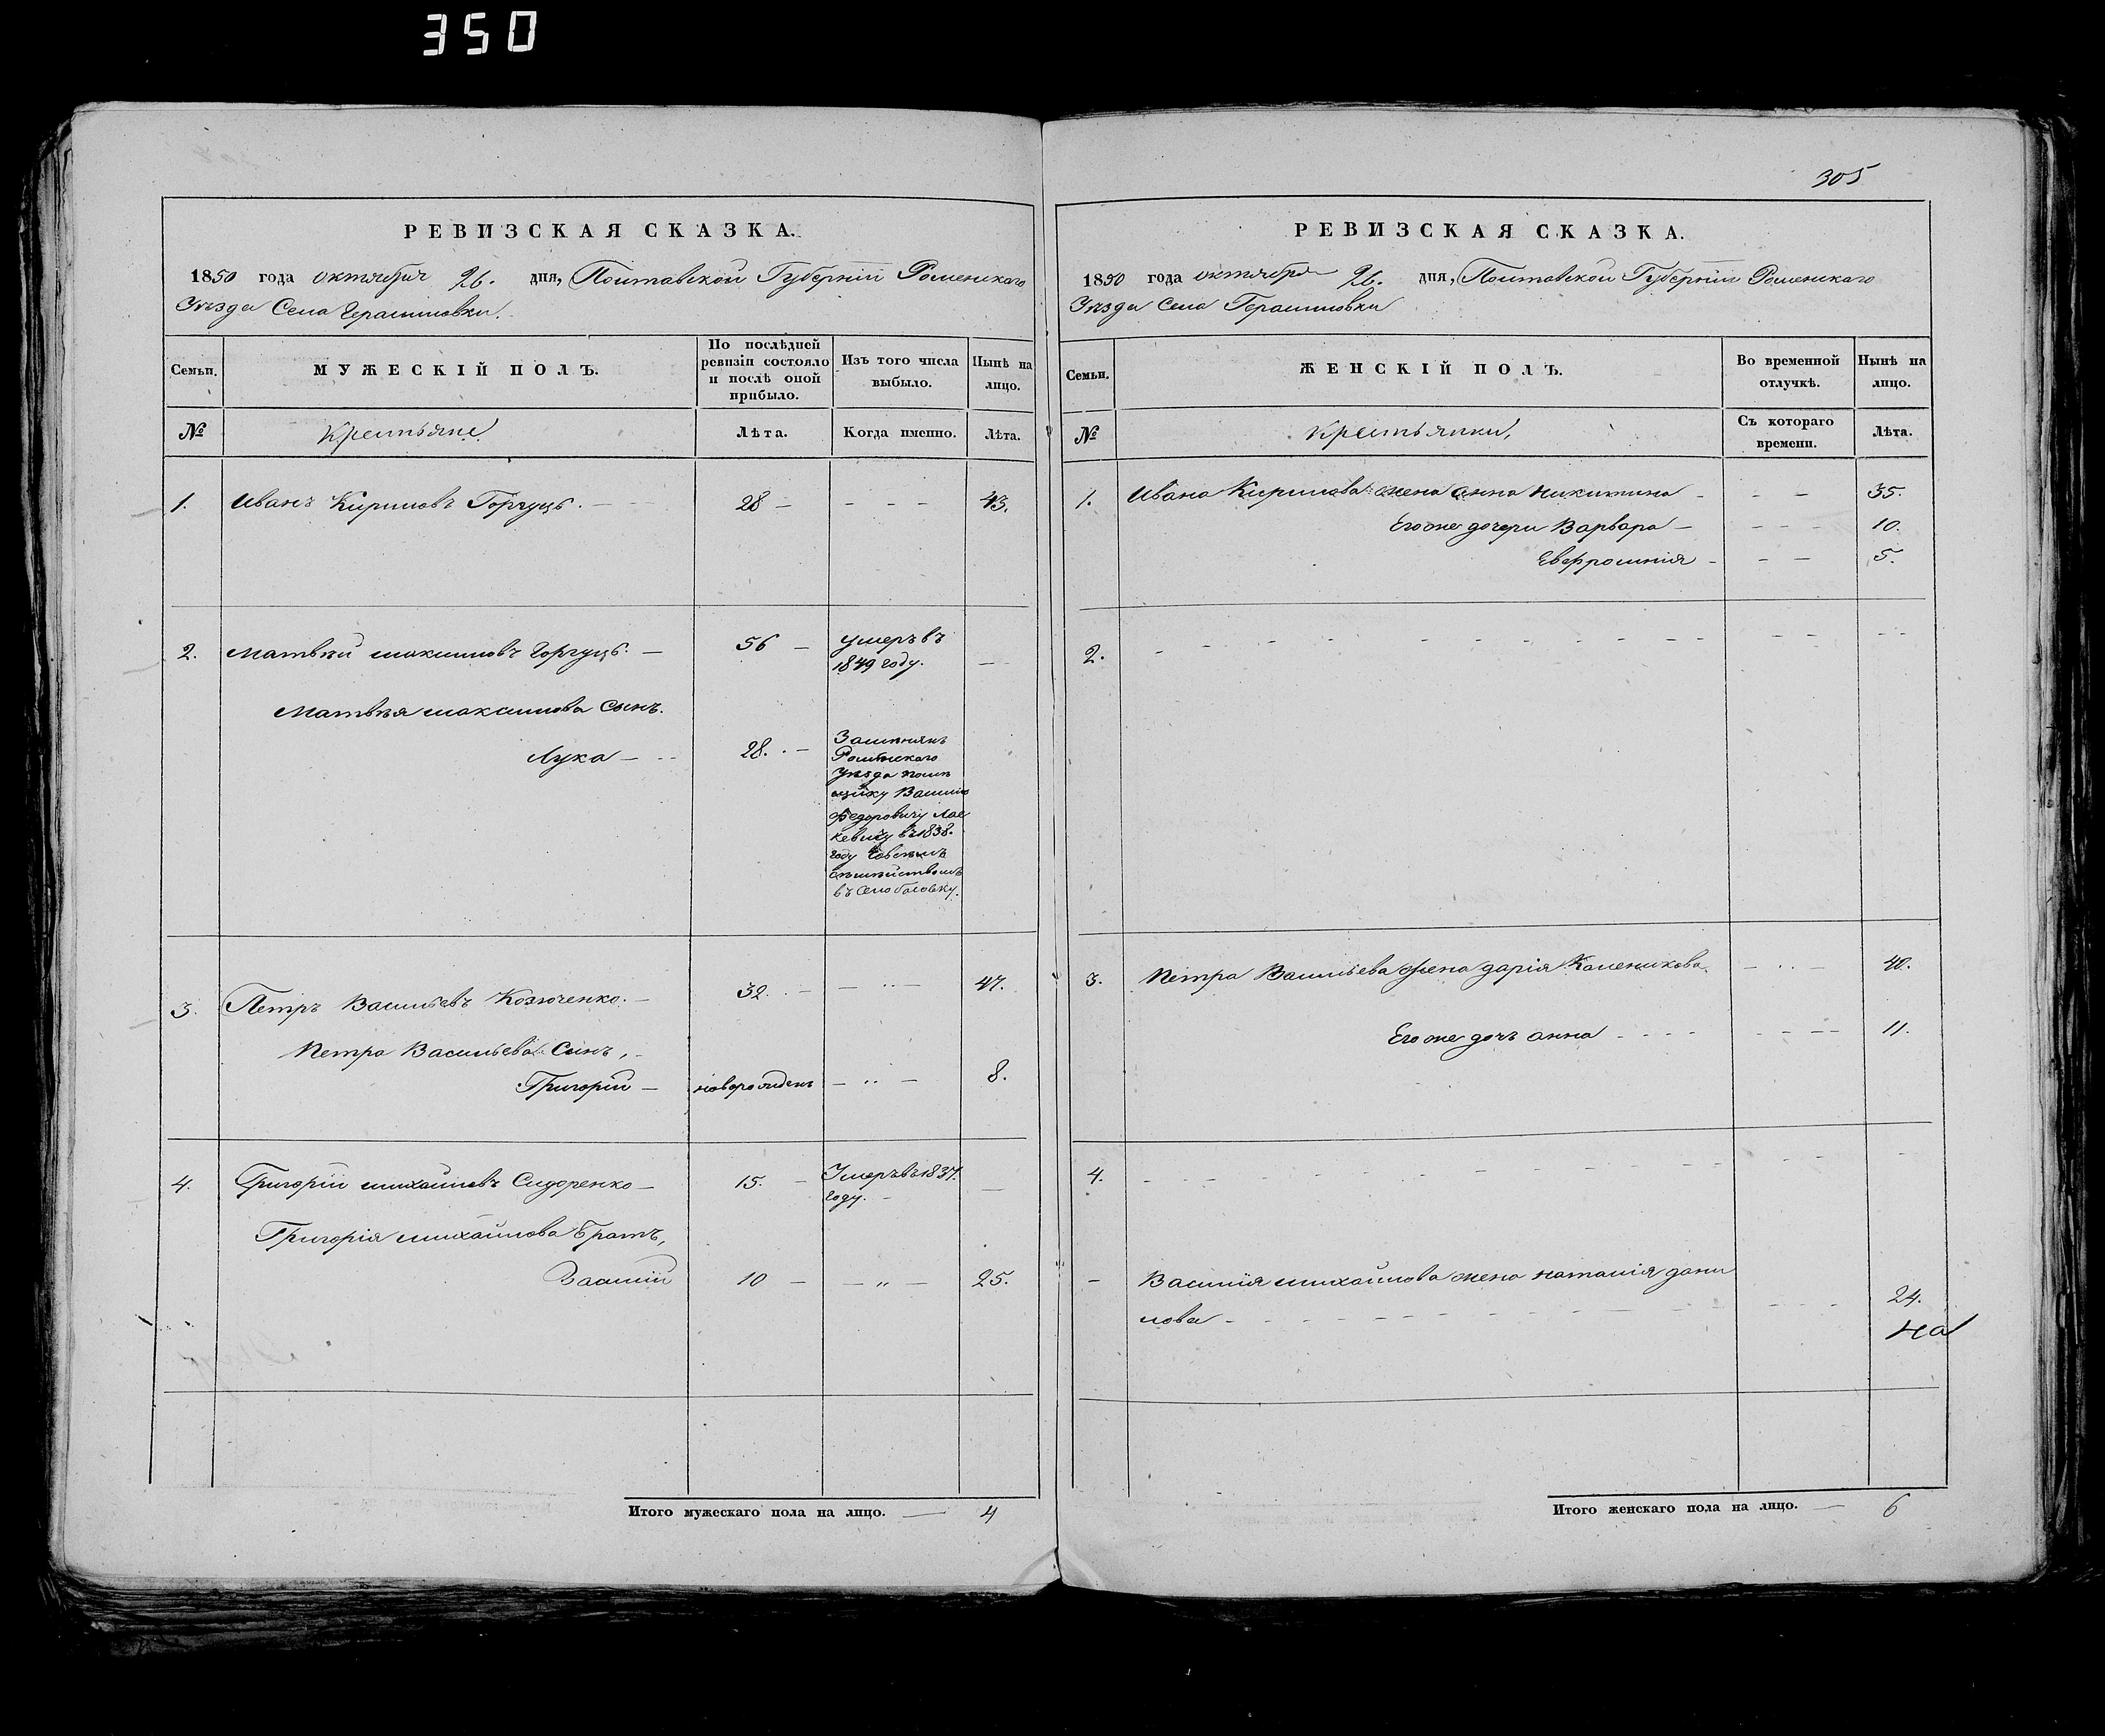 350
РЕВИЗСКАЯ СКАЗКА.
1850 года октября 26. дня, Полтавской Губерніи Роменскаго
Уѣзда Села Герасимовки.
Семьи.
МУЖЕСКІЙ ПОЛЪ.
По послѣдней ревизіи состояло и послѣ оной прибыло.
Изъ того числа выбыло.
Нынѣ на лицо.
№
Крестьяне
Лѣта.
Когда именно.
Лѣта.
1. Иванъ Кириловъ Горгуць. — 28 — - - - 43.
2. Матвѣй Максимовъ Горгуць. — 56 — умеръ въ
1849 году. —
Матвѣя Максимова Сынъ.
Лука — 28. —
Роменскаго
Уѣзда помѣ
щику Василію
Федоровичу
въ 1838.
году
семѣйствомъ
въ Село
3. Петръ Васильевъ Козюченко. — 32. — — 47.
Петра Васильева Сынъ,
Григорій — новорожденъ — „ — 8.
4. Григорій Михайловъ Сидоренко — 15. — Умеръ въ 1837.
году. — —
Григорія Михайлова Братъ,
Василій 10 — — „ — 25.
Итого мужескаго пола на лицо. — 4
305
РЕВИЗСКАЯ СКАЗКА.
1850 года октября 26. дня, Полтавской Губерніи Роменскаго
Уѣзда Села Герасимовки
Семьи.
ЖЕНСКІЙ ПОЛЪ.
Во временной отлучкѣ.
Нынѣ на лицо.
№
Крестьянки,
Съ котораго времени.
Лѣта.
1. Ивана Кирилова жена Анна Никитина - - - 35.
Его же дочери Варвара — - - - 10.
Евфросинія - - — 5.
2.
3. Петра Васильева жена Дарія Каленикова. — 40.
Его же дочь Анна - - - - 11.
4.
— Василія Михайлова жена Наталія Дани
лова - - - 24.
Итого женскаго пола на лицо. — 6